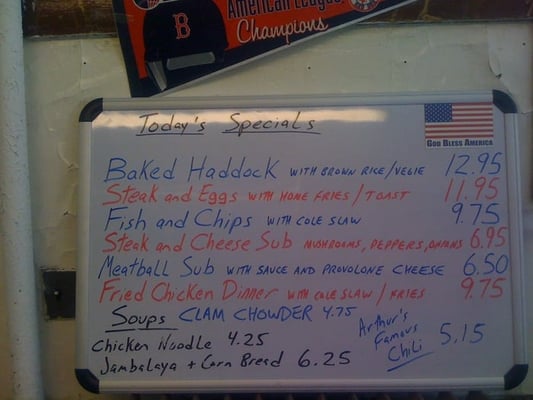 B
American League
Champions
Today's Specials
GOD BLESS AMERICA
Baked Haddock WITH BROWN RICE/VEGIE 12.95
Steak and Eggs WITH HOME FRIES/TOAST 11.95
Fish and Chips WITH COLE SLAW 9.75
Steak and Cheese Sub MUSHROOMS, PEPPERS, ONIONS 6.95
Meatball Sub WITH SAUCE AND PROVOLONE CHEESE 6.50
Fried Chicken Dinner WITH COLE SLAW/FRIES 9.75
Soups CLAM CHOWDER 4.75
Chicken Noodle 4.25
Jambalaya + Corn Bread 6.25
Arthur's
Famous
Chili 5.15